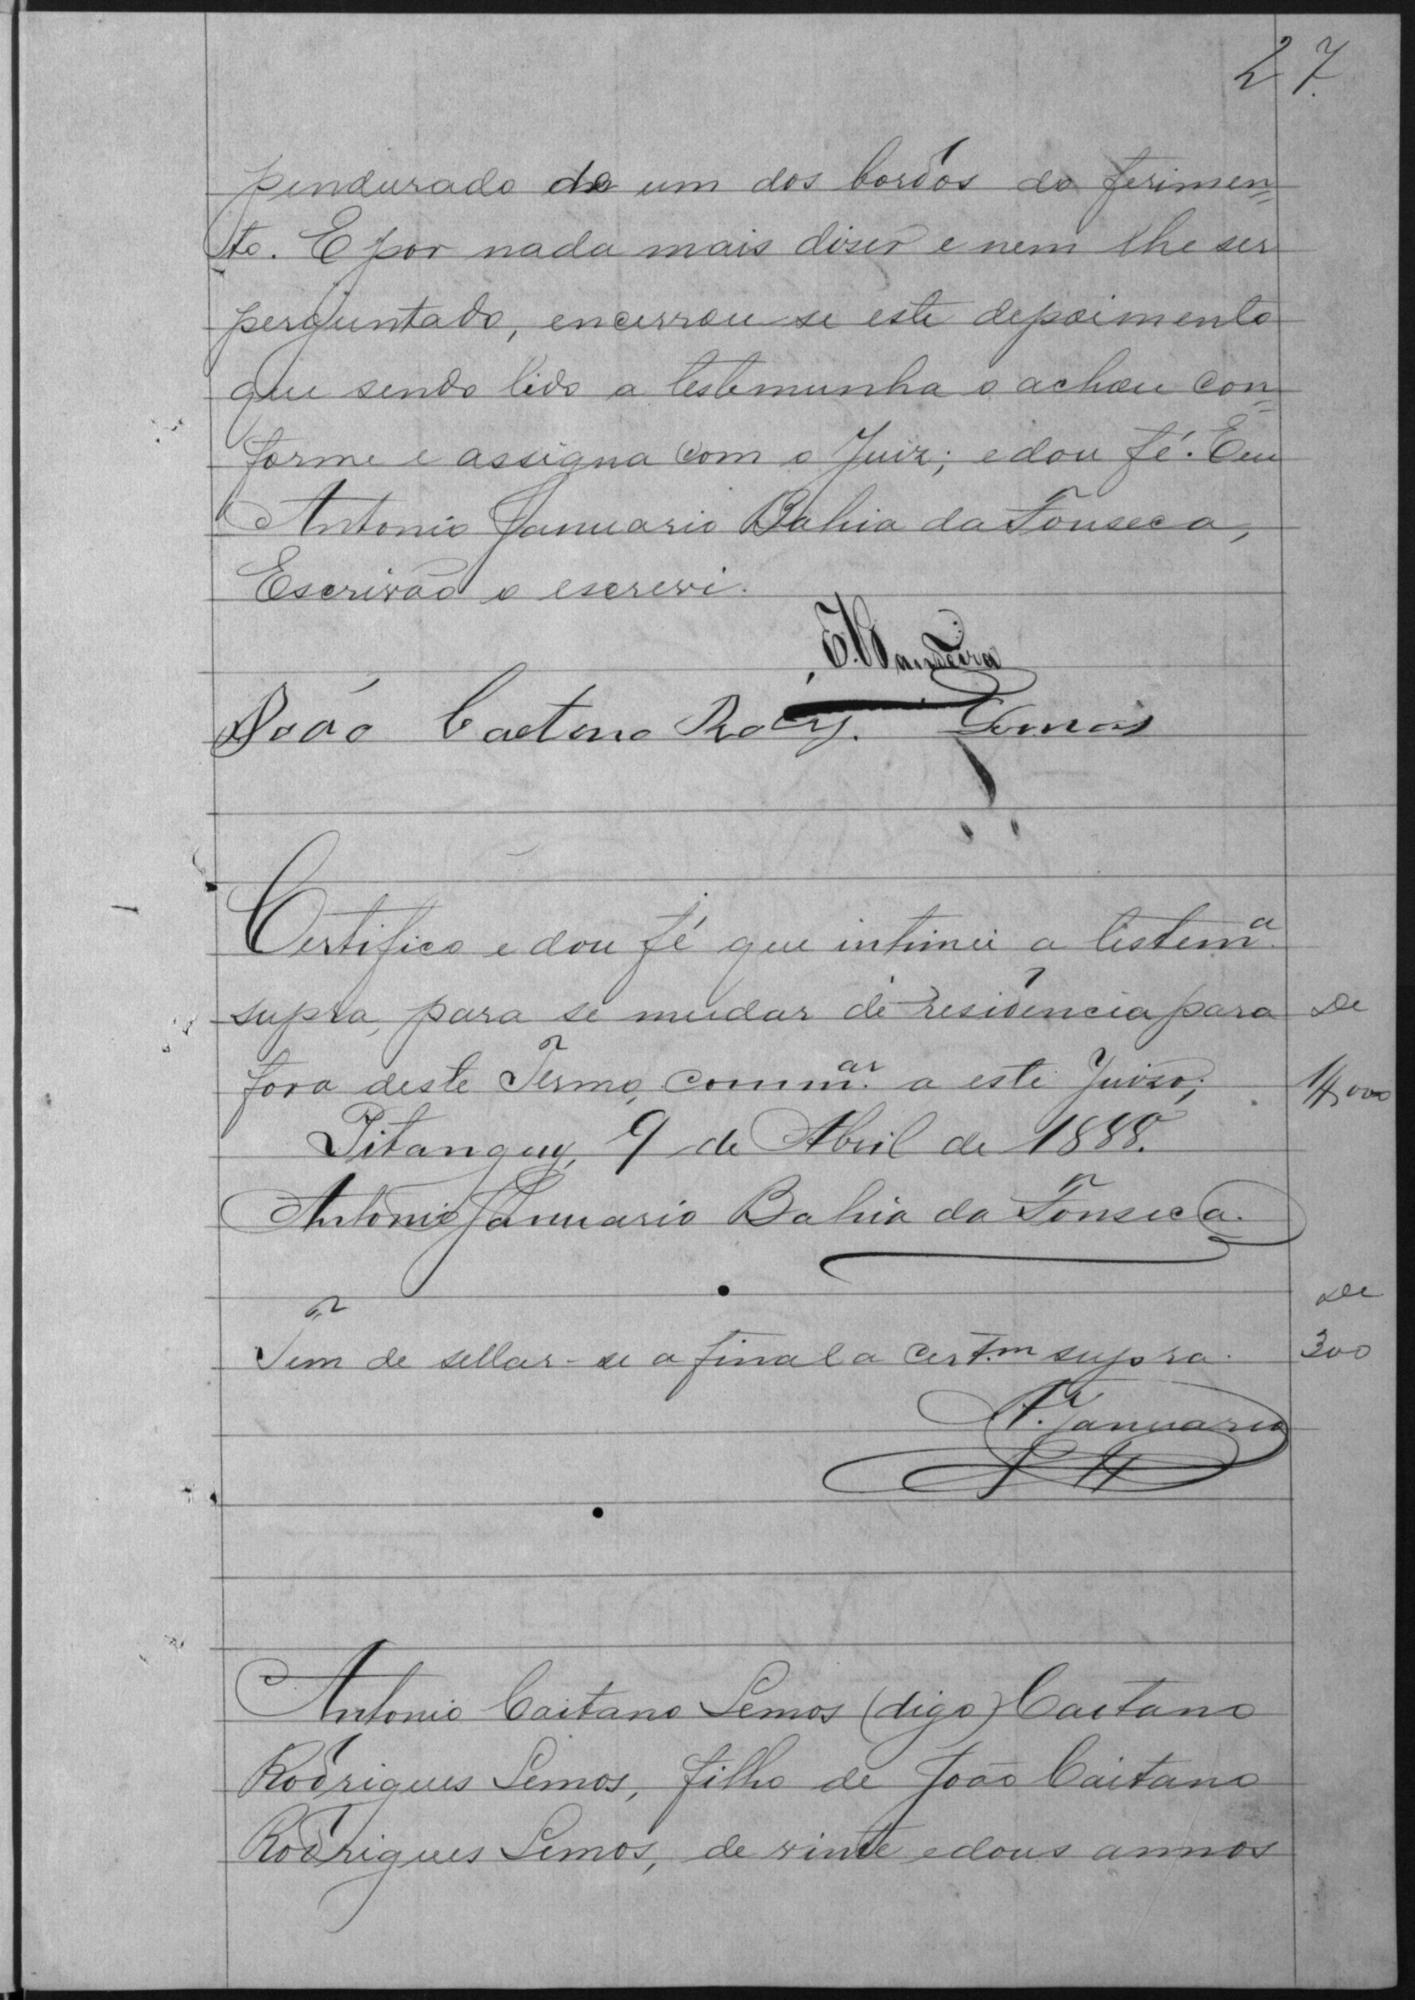 27.
pendurado de um dos bordos do ferimen=
to. E por nada mais diser e nem lhe ser
perguntado, encerrou se este depoimento
que sendo lido a testemunha o achou con=
forme e assigna com o Juiz; e dou fé. Eu
Antonio Januario Bahia da Fonseca,
Escrivão o escrevi.
João Caetano Roiz. Lemos
Certifico e dou fé que intimei a testem.a
supra, para se mudar de residencia para
fora deste Termo, comm.ar a este Juizo;
Pitanguy, 9 de Abril de 1888.
Antonio Januario Bahia da Fonseca.
De
1$000
Tem de sellar-se a final a cert.m supra.
De
300
A. Januario
Antonio Caitano Lemos (digo) Caetano
Rodrigues Lemos, filho de João Caitano
Rodrigues Lemos, de vinte e dous annos